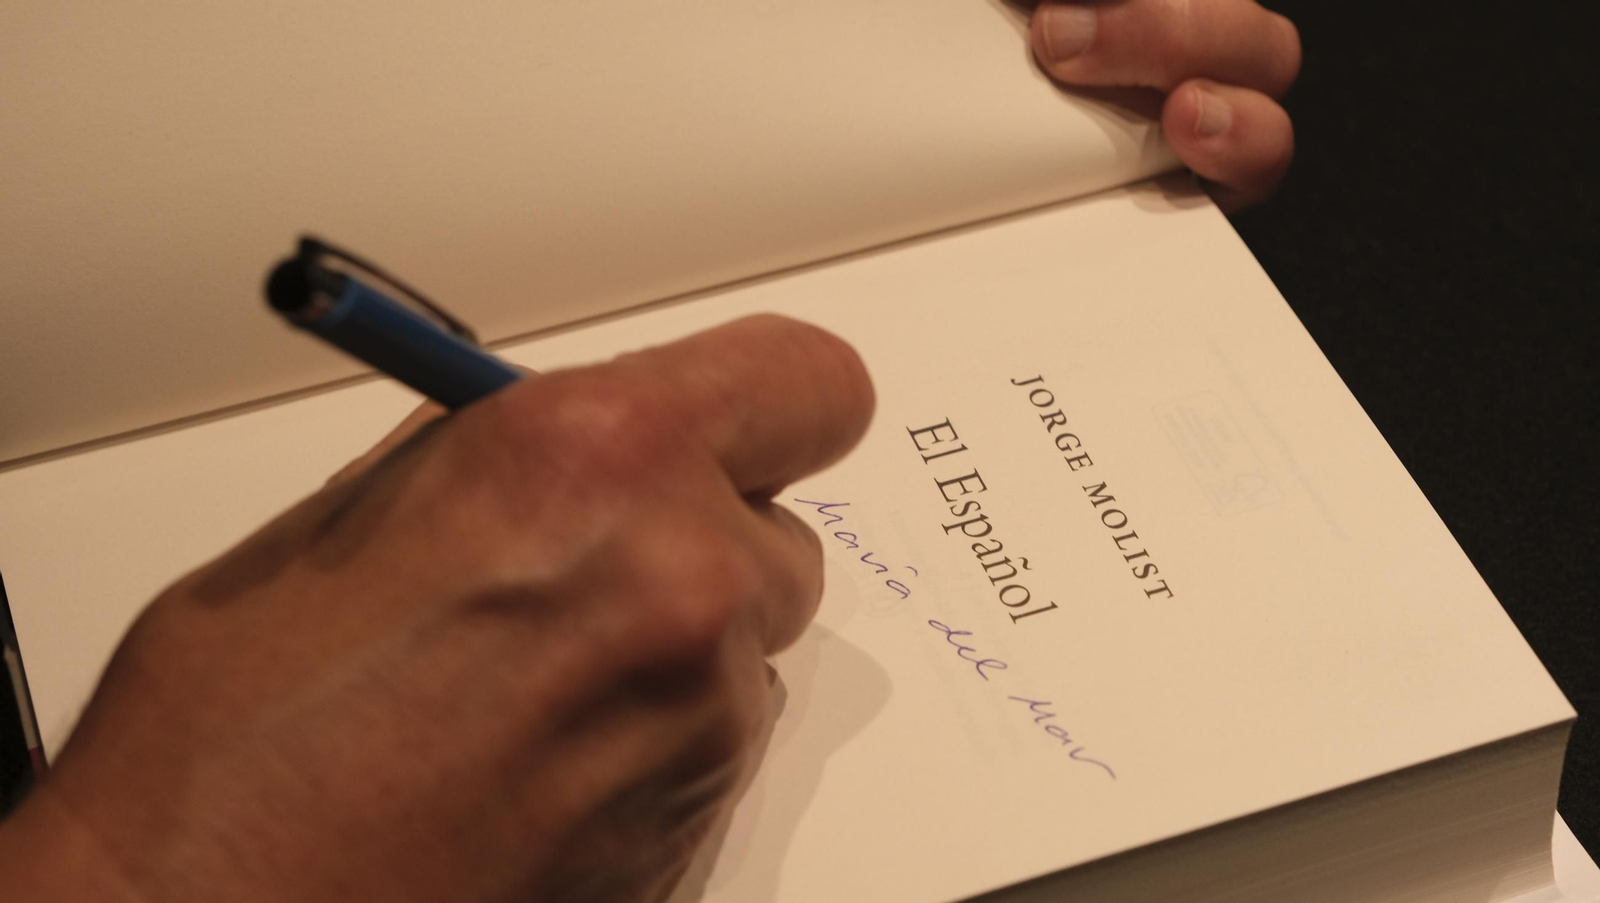 JORGE MOLIST
El Español
María del Mar